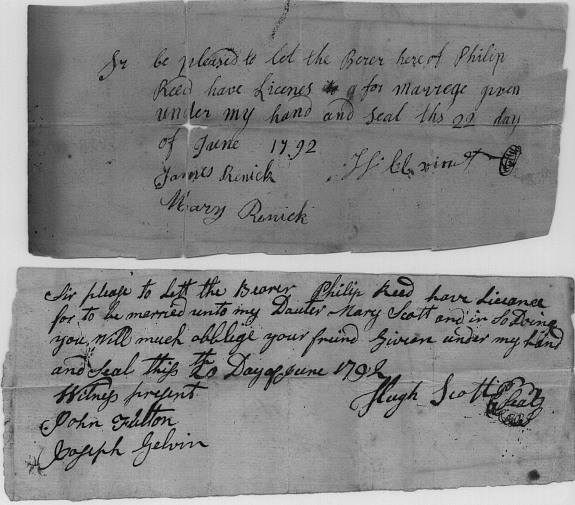 Sr be pleased to let the Berer here of Philip
Reed have Licenes for marrege given
under my hand and seal ths 22 day
of June 1792
James Renick
Mary Renick
Sir please to Lett the Bearer Philip Reed have Liceance
for to be married unto my Dauter Mary Scott and in So Doing
you will much obblege your friend Givien under my hand
and seal thiss the 20 Day of June 1792
Witness present
Hugh Scott Seal
John Fulton
Joseph Gelvin